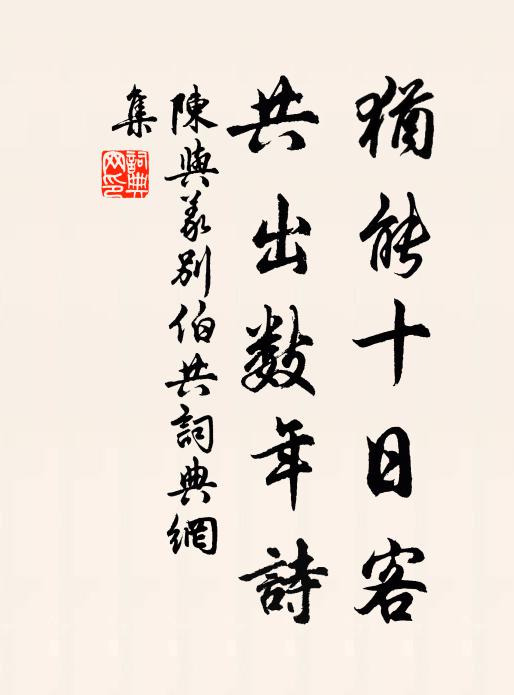 猶能十日客
共出数年詩
陳與義别伯共詞典網
集
詞典
网印